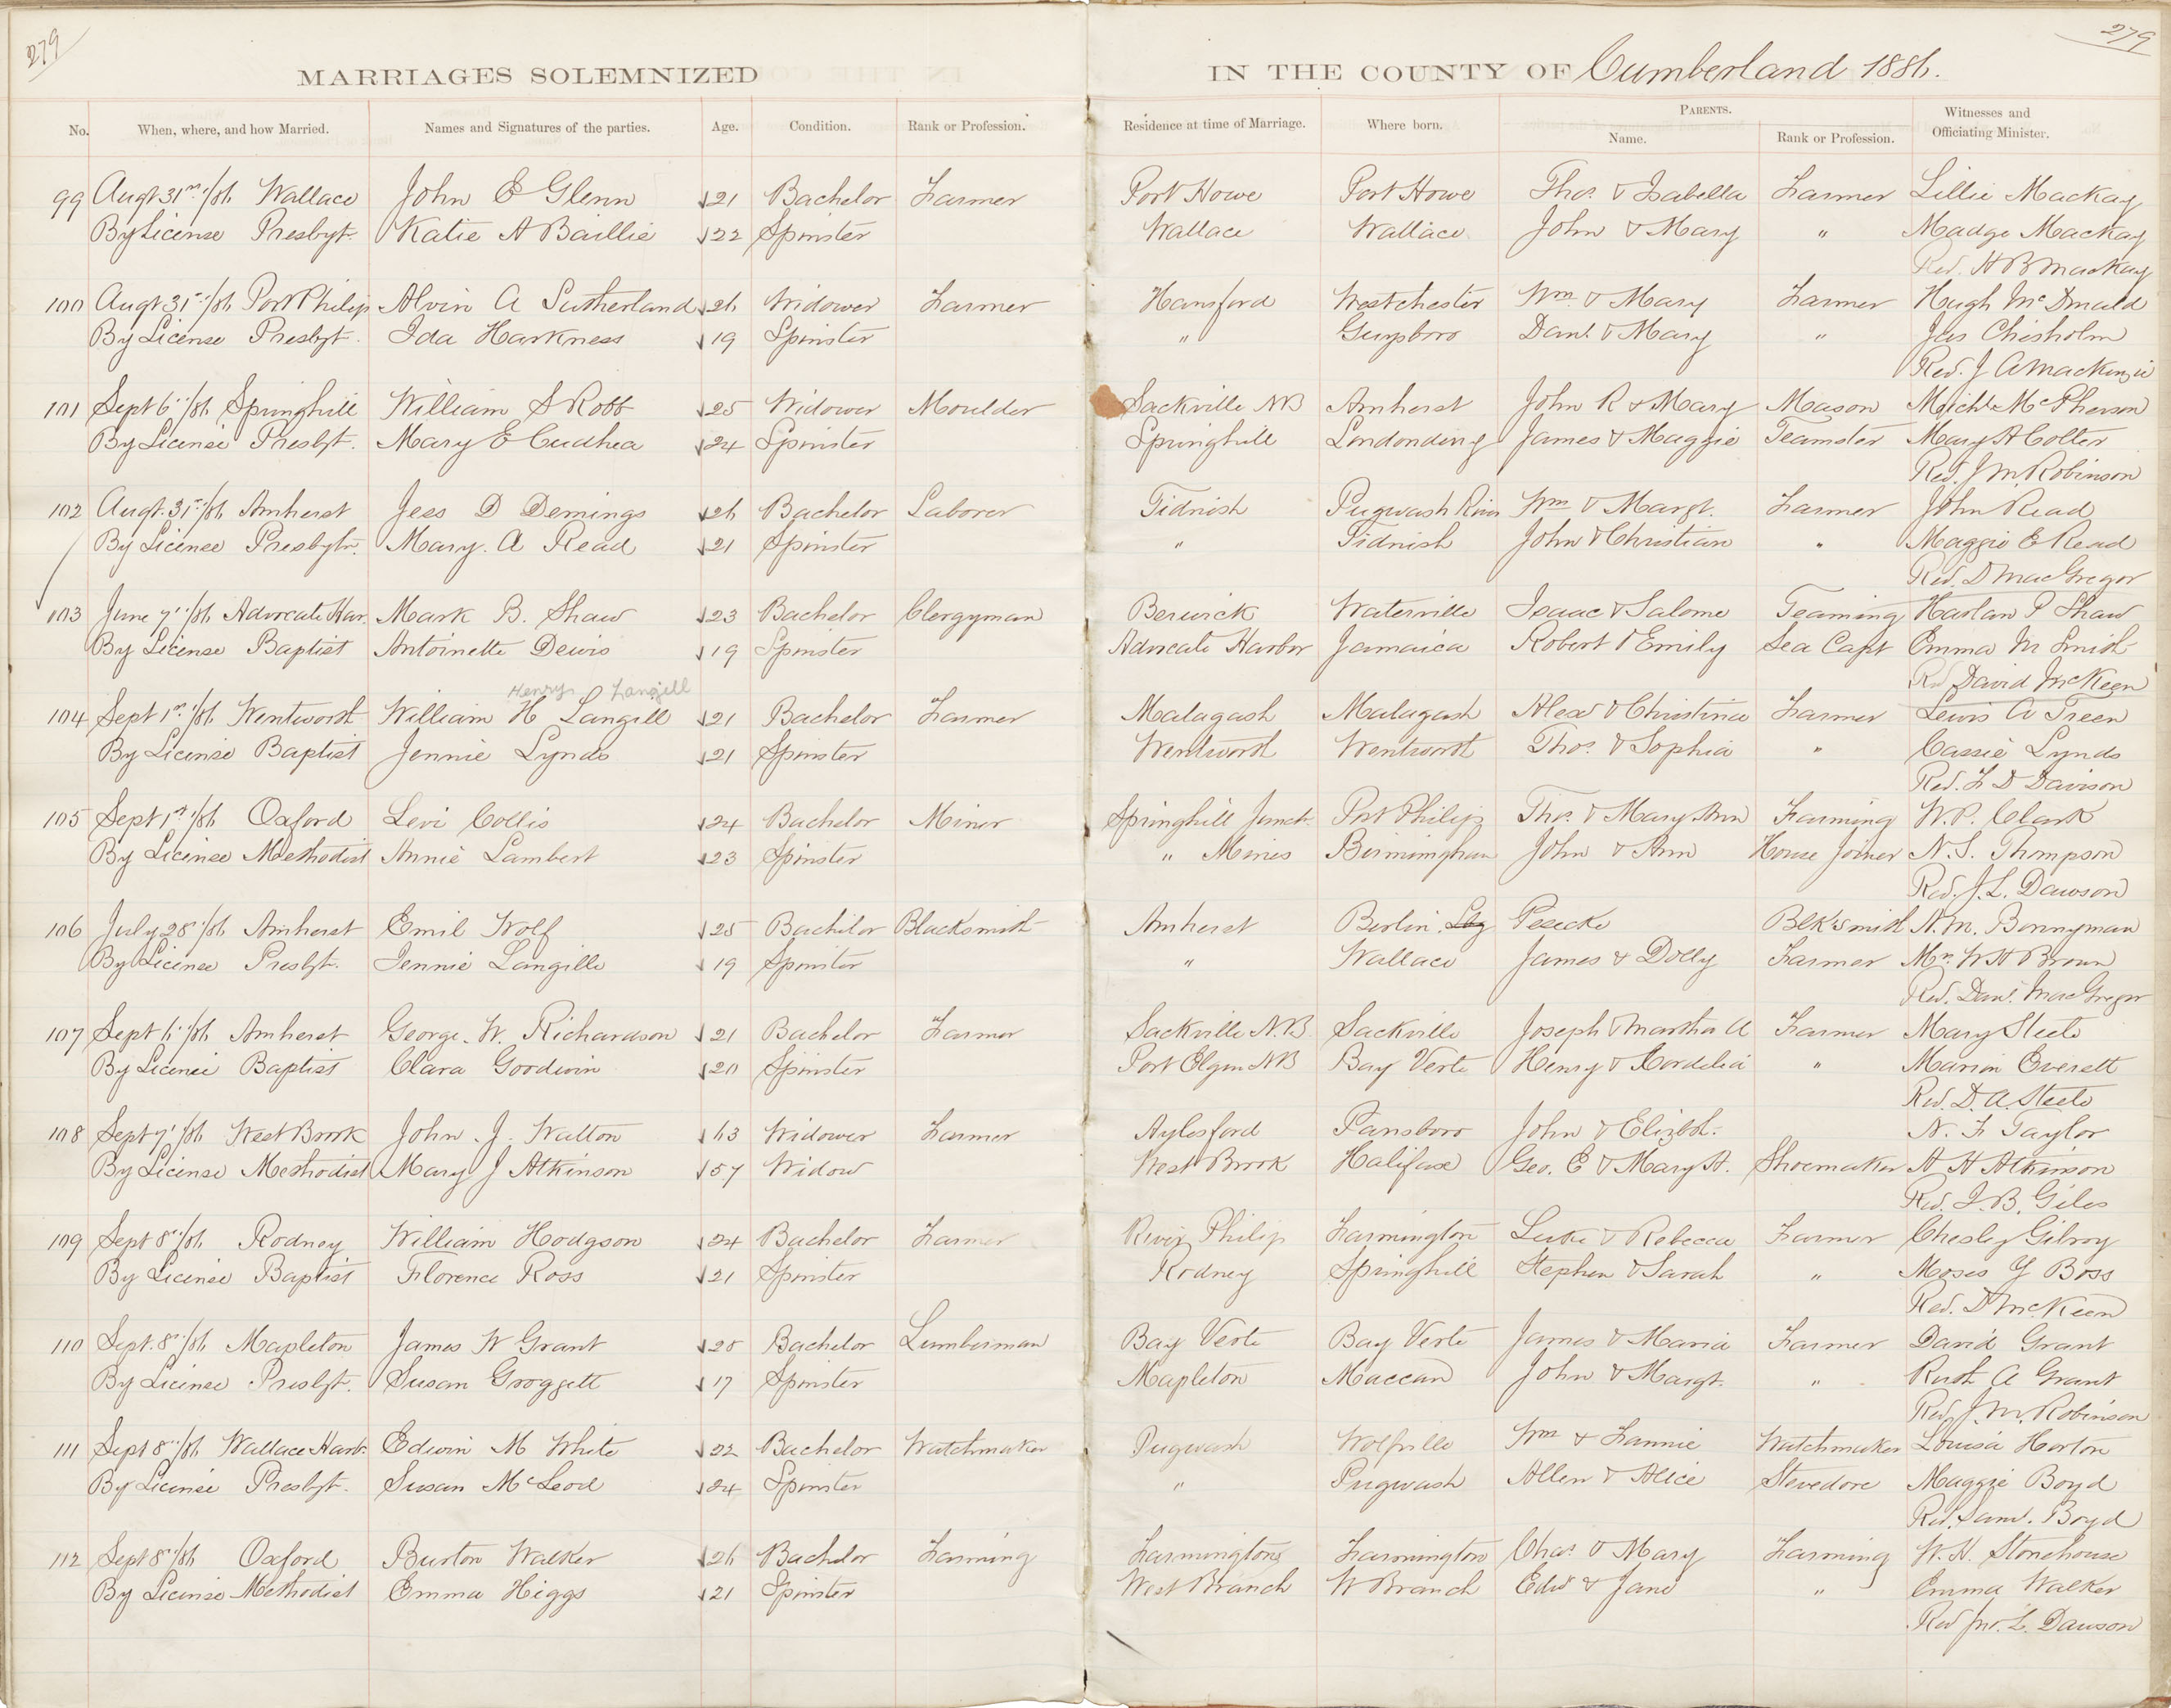 279
279
MARRIAGES SOLEMNIZED IN THE COUNTY OF Cumberland 1886.
No. When, where, and how Married. Names and Signatures of the parties. Age. Condition. Rank or Profession. Residence at time of Marriage. Where born. PARENTS. Name. Rank or Profession. Witnesses and Officiating Minister.
99 Augt 31st /86 Wallace John E Glenn 21 Bachelor Farmer Port Howe Port Howe Thos. & Isabella Farmer Lillie Mackay
By License Presbyt. Katie A Baillie 22 Spinster Wallace Wallace John & Mary " Madge Mackay
Rev. H B MacKay
100 Augt 31st /86 Port Philip Alvin A Sutherland 26 Widower Farmer Hansford Westchester Wm & Mary Farmer Hugh McDonald
By License Presbyt. Ida Harkness 19 Spinster " Guysboro Danl. & Mary " Jas Chisholm
Rev. J A Mackenzie
101 Sept 6" /86 Springhill William S Robb 25 Widower Moulder Sackville NB Amherst John R & Mary Mason Michl McPherson
By License Presbyt. Mary E Cudhea 24 Spinster Springhill Londonderry James & Maggie Teamster Mary A Colter
Rev. J M Robinson
102 Augt. 31st /86 Amherst Jess D Demings 26 Bachelor Laborer Tidnish Pugwash River Wm & Margt. Farmer John Read
By License Presbytn. Mary. A Read 21 Spinster " Tidnish John & Christian " Maggie E Read
Rev. D MacGregor
103 June 7" /86 Advocate Har. Mark B. Shaw 23 Bachelor Clergyman Berwick Waterville Isaac & Salome Teaming Harlan P Shaw
By License Baptist Antoinette Dewis 19 Spinster Advocate Harbor Jamaica Robert & Emily Sea Capt Emma M Smith
Rev David McKeen
Henry Langill
104 Sept 1st /86 Wentworth William H Langill 21 Bachelor Farmer Malagash Malagash Alexr & Christina Farmer Lewis A Treen
By License Baptist Jennie Lynds 21 Spinster Wentworth Wentworth Thos. & Sophia " Cassie Lynds
Rev. F D Davison
105 Sept 1st /86 Oxford Levi Collis 24 Bachelor Miner Springhill Junct. Port Philip Thos. & Mary Ann Farming W.P. Clark
By License Methodist Annie Lambert 23 Spinster " Mines Birmingham John & Ann House Joiner N.S. Thompson
Rev. J.L. Dawson
106 July 28" /86 Amherst Emil Wolf 25 Bachelor Blacksmith Amherst Berlin Peecke Blk'smith A.M. Bonnyman
By License Presbyt. Jennie Langille 19 Spinster " Wallace James & Dolly Farmer Mr. W H Brown
Rev. Danl. MacGregor
107 Sept 6" /86 Amherst George. W. Richardson 21 Bachelor Farmer Sackville N.B Sackville Joseph & Martha A Farmer Mary Steele
By License Baptist Clara Goodwin 20 Spinster Port Elgin NB Bay Verte Henry & Cordelia " Marion Everett
Rev. D.A. Steele
108 Sept 7" /86 West Brook John. J. Walton 63 Widower Farmer Aylesford Parrsboro John & Elizbth. N. F Taylor
By License Methodist Mary J Atkinson 57 Widow West Brook Halifax Geo. E & Mary A. Shoemaker A H Atkinson
Rev. J.B. Giles
109 Sept 8" /86 Rodney William Hodgson 24 Bachelor Farmer River Philip Farmington Luke & Rebecca Farmer Chesley Gilroy
By License Baptist Florence Ross 21 Spinster Rodney Springhill Stephen & Sarah " Moses Y Boss
Rev. D McKeen
110 Sept. 8" /86 Mapleton James W Grant 28 Bachelor Lumberman Bay Verte Bay Verte James & Maria Farmer David Grant
By License Presbyt. Susan Groggett 17 Spinster Mapleton Maccan John & Margt. " Ruth A Grant
Rev. J.M. Robinson
111 Sept 8" /86 Wallace Harb. Edwin M White 22 Bachelor Watchmaker Pugwash Wolfville Wm & Fannie Watchmaker Louisa Horton
By License Presbyt. Susan McLeod 24 Spinster " Pugwash Allen & Alice Stevedore Maggie Boyd
Rev. Saml. Boyd
112 Sept 8" /86 Oxford Burton Walker 26 Bachelor Farming Farmington Farmington Chas. & Mary Farming W.H. Stonehouse
By License Methodist Emma Higgs 21 Spinster West Branch W Branch Edw. & Jane " Emma Walker
Rev Jno. L. Dawson